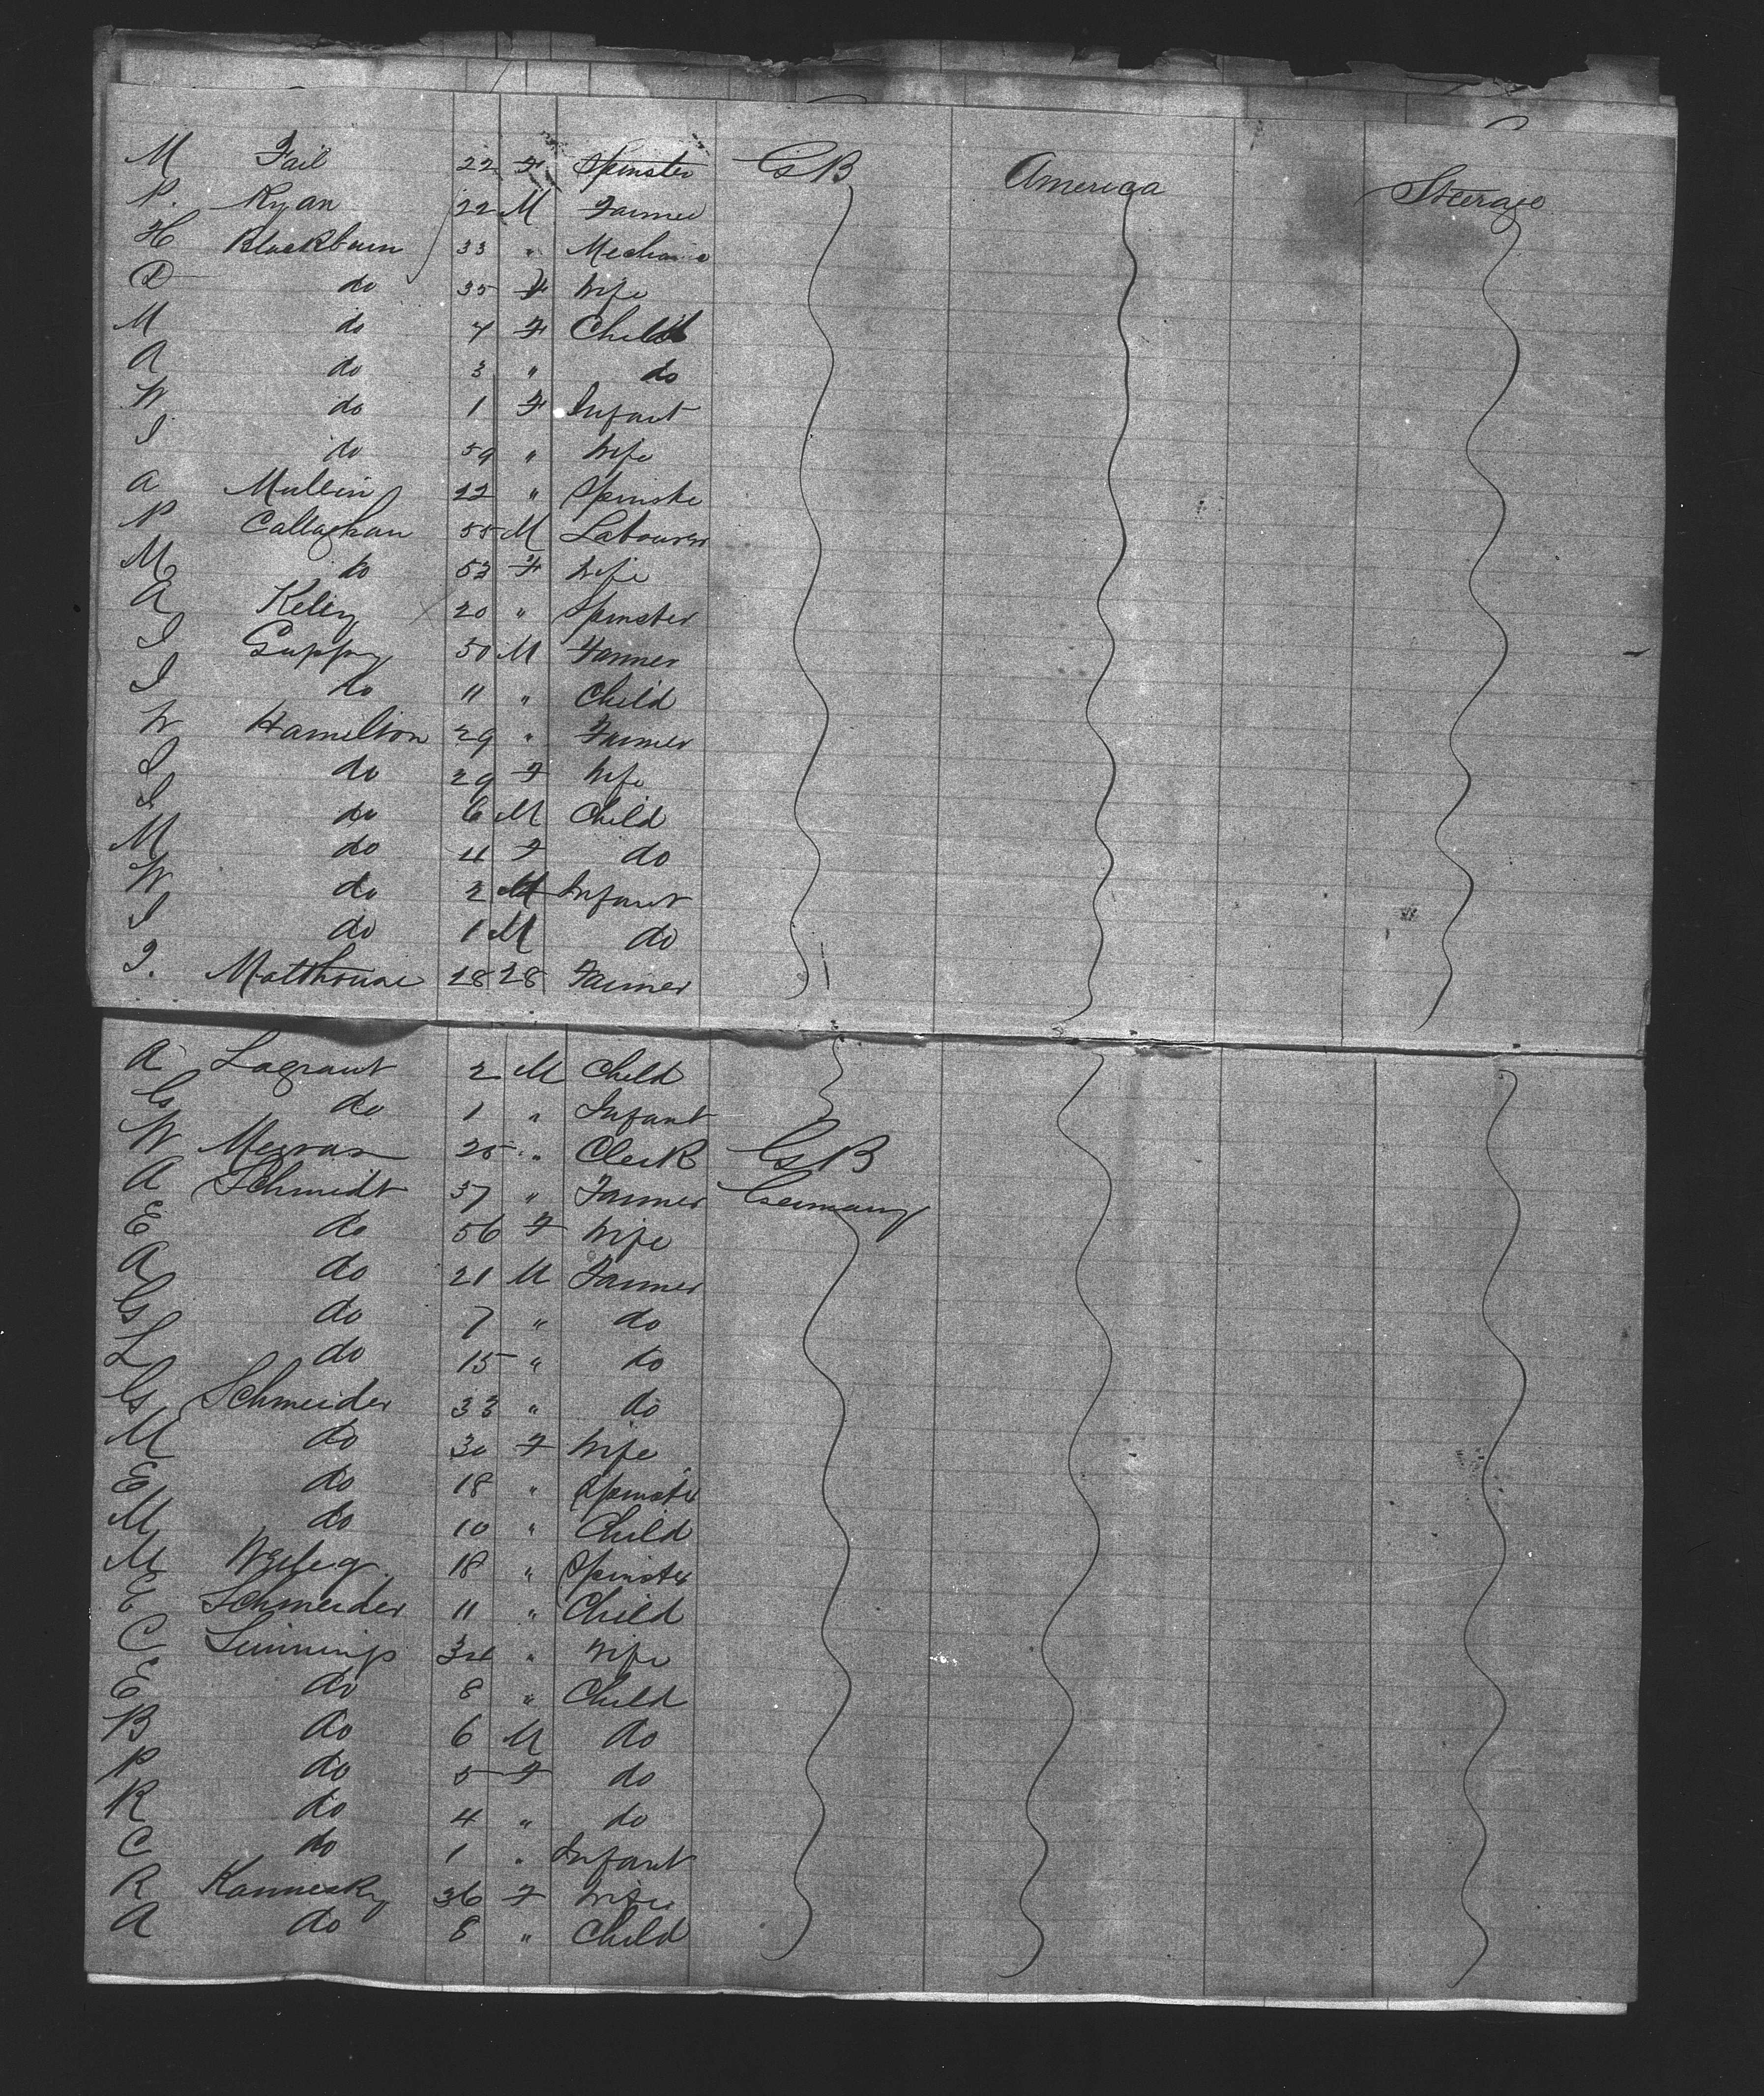 M Fail 22 F Spinster GB America Steerage
P. Ryan 22 M Farmer
H Blackburn 33 " Mechanic
D do 35 F Wife
M do 7 F Child
A do 3 " do
W. do 1 F Infant
I do 59 " Wife
A Mullin 22 " Spinste
P Callaghan 55 M Labourer
M do 52 F Wife
A Kelly 20 " Spinster
I Guppy 50 M Farmer
I do 11 " Child
W Hamilton 29 " Farmer
I do 29 F Wife
I do 6 M Child
M do 4 F do
W do 2 M Infant
I do 1 M do
J. Matthouse 28 28 Farmer
A Lagrant 2 M Child
G do 1 " Infant
W 25 " Clerk GB
A Schmidt 57 " Farmer Germany
E do 56 F Wife
A do 21 M Farmer
G do 7 " do
L do 15 " do
G Schneider 33 " do
M do 30 F Wife
E do 18 " Spinste
M do 10 " Child
M 18 " Spinster
E Schneider 11 " Child
C 34 " Wife
E do 8 " Child
B do 6 M do
P do 5 F do
R do 4 " do
C do 1 " Infant
R Kannesky 36 F Wife
A do 8 " Child